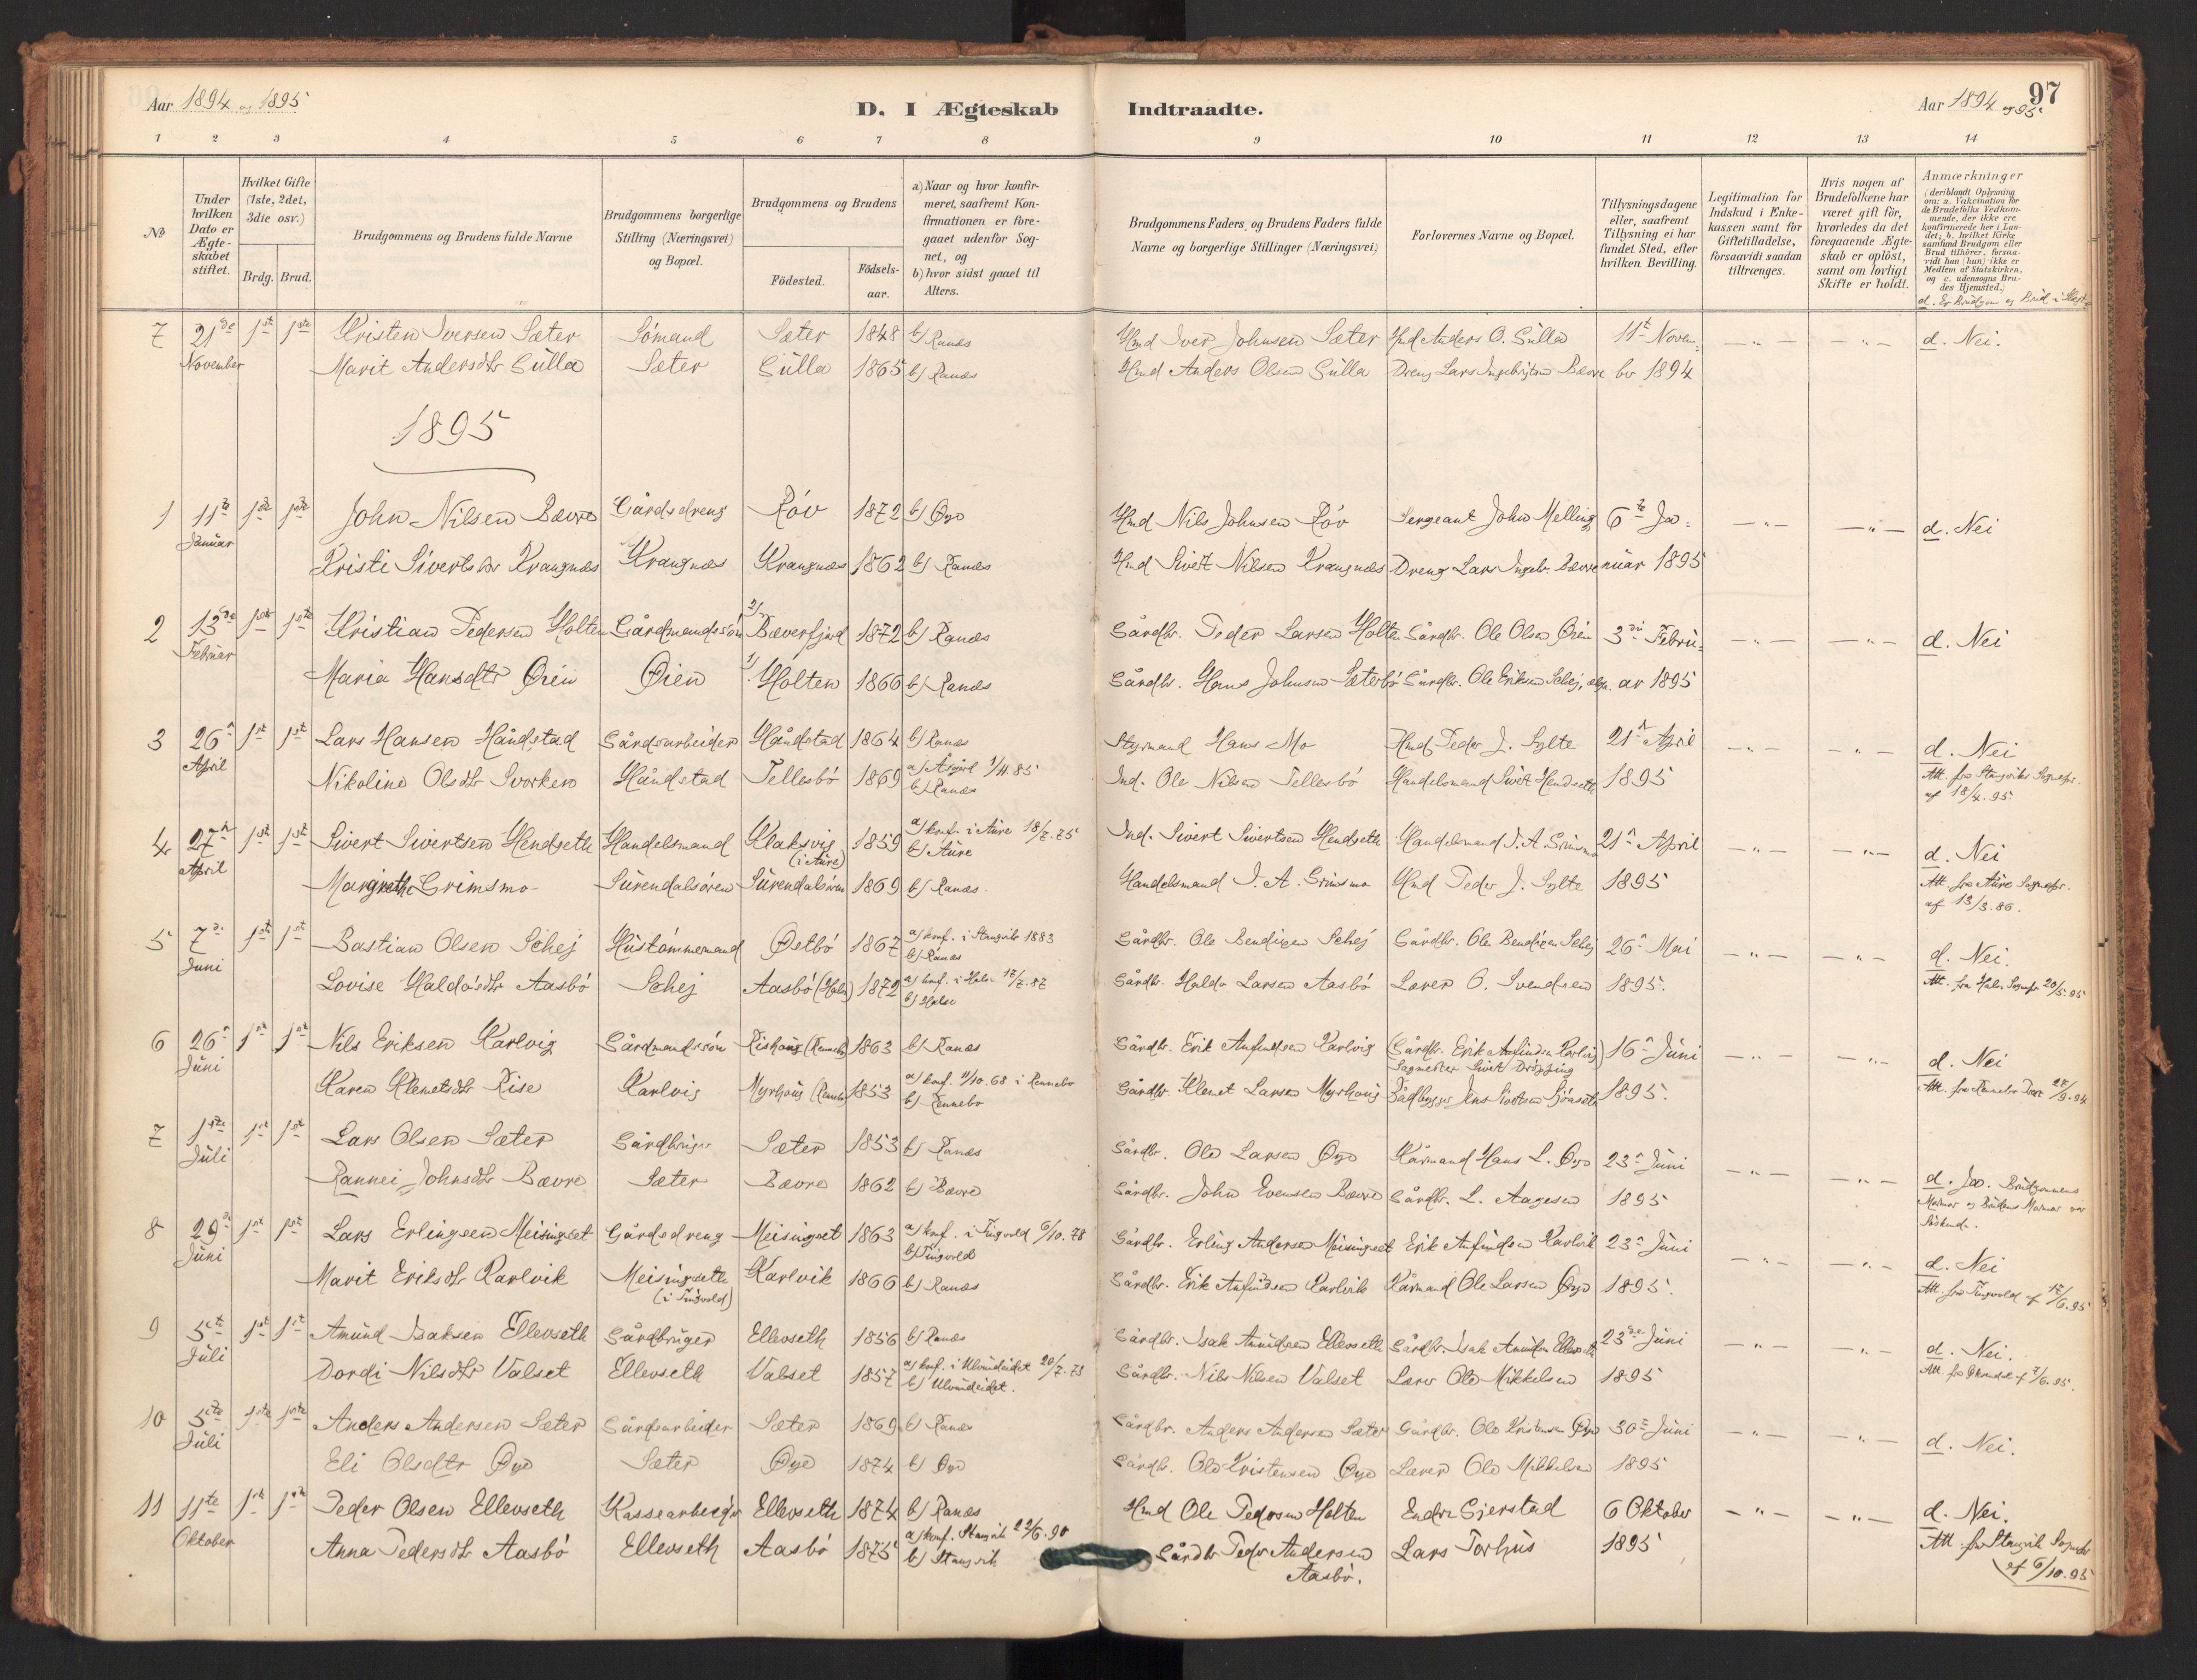 Aar 1894 og 1895
D. I Ægteskab Indtraadte.
Aar 1894 og 95.
97
1 2 3 4 5 6 7 8 9 10 11 12 13 14
No
Under hvilken Dato er Ægteskabet stiftet.
Hvilket Gifte (1ste, 2det, 3die osv.)
Brdg. Brud.
Brudgommens og Brudens fulde Navne
Brudgommens borgerlige Stilling (Næringsvei) og Bopæl.
Brudgommens og Brudens
Fødested.
Fødselsaar.
a) Naar og hvor konfirmeret, saafremt Konfirmationen er foregaaet udenfor Sognet, og
b) hvor sidst gaaet til Alters.
Brudgommens Faders og Brudens Faders fulde Navne og borgerlige Stillinger (Næringsvei)
Forlovernes Navne og Bopæl.
Tillysningsdagene eller, saafremt Tillysning ei har fundet Sted, efter hvilken Bevilling.
Legitimation for Indskud i Enkekassen samt for Giftetilladelse, forsaavidt saadan tiltrænges.
Hvis nogen af Brudefolkene har været gift før, hvorledes da det foregaaende Ægteskab er opløst, samt om lovligt Skifte er holdt.
Anmærkninger (deriblandt Oplysning om: a. Vakcination for de Brudefolks Vedkommende, der ikke ere konfirmerede her i Landet; b. hvilket Kirkesamfund Brudgom eller Brud tilhører, forsaavidt han (hun) ikke er Medlem af Statskirken, og c. udensogns Brudes Hjemsted.)
7 21de 1st 1ste Kristen Iversen Sæter Sømand Sæter 1848 b) Ranæs Hmd Iver Johnsen Sæter Hmd Anders O. Gulla 11te Novem- d. Nei.
November Marit Andersdtr Gulla Sæter Gulla 1865 b) Ranæs Hmd Anders Olsen Gulla Dreng Lars Ingebrigtsen Bævre ber 1894
1895
1 11te 1ste 1ste John Nilsen Bævre Gårdsdreng Røv 1872 b) Øye Hmd Nils Johnsen Røv Sergeant John Melling 6te Ja- d. Nei
Januar Kristi Sivertsdtr Krangnæs Krangnæs Krangnæs 1862 b) Ranæs Hmd Sivert Nilsen Krangnæs Dreng Lars Ingebr. Bævre nuar 1895
2 13de 1ste 1ste Kristian Pedersen Holten Gårdmandssøn 2) Bæverfjord 1872 b) Ranæs Gårdbr. Peder Larsen Holten Gårdbr. Ole Olsen Øien 3die Febru- d. Nei
Februar Maria Hansdtr Øien Øien 1) Holten 1866 b) Ranæs Gårdbr. Hans Johnsen Sæterbø Gårdbr. Ole Eriksen Schej, ar 1895
3 26n 1st 1st Lars Hansen Håndstad Gårdsarbeider Håndstad 1864 b) Ranæs Styrmand Hans Mo Hmd Peder J. Sylte 21n April d. Nei
April Nikoline Olsdtr Svorken Håndstad Tellesbø 1869 a) Åsgård 1/11.85 b) Ranæs Ind. Ole Nilsen Tellesbø Handelsmand Sivert Hendseth 1895 Att. fra Stangviks Sognepr. af 18/4. 95.
4 27n 1st 1st Sivert Sivertsen Hendseth Handelsmand Klaksvig (i Aure) 1859 a) konf. i Aure 18/7. 75 b) Aure Ind. Sivert Sivertsen Hendseth Handelsmand J. A. Grimsmo 21n April d. Nei
April Margrethe Grimsmo Surendalsøren Surendalsøren 1869 b) Ranæs. Handelsmand J. A. Grimsmo Hmd Peder J. Sylte 1895 Att. fra Aure Sognepr. af 13/3. 86.
5 7de 1ste 1st Bastian Olsen Schej Hustømmermand Østbø 1867 a) konf. i Stangvik 1883 b) Ranæs Gårdbr. Ole Bendixen Schej Gårdbr. Ole Bendixen Schej 26n Mai d. Nei.
Juni Lovise Haldosdtr Aasbø Schej Aasbø (Halse) 1872 a) konf. i Halse 17/7. 87 b) Halse Gårdbr. Haldo Larsen Aasbø Lærer O. Svendsen 1895. Att. fra Halse Sognepr. 20/5. 95
6 26n 1st 1st Nils Eriksen Karlvig Gårdmandssøn Rishaug (Rennebo) 1863 b) Ranæs Gårdbr. Erik Anfindsen Karlvig (Gårdbr. Erik Anfindsen Karlvig) Sagmester Sivert Drøpping 16n Juni d. Nei
Juni Karen Klemetsdtr Rise Karlvig Myrhaug (Rennebo) 1853 a) konf. 11/10. 68 i Rennebo b) Rennebo Gårdbr. Klemet Larsen Myrhaug Bådbygger Jens Sivertsen 1895. Att. fra Rennebo 27/9. 94
7 1ste 1st 1st Lars Olsen Sæter Gårdbruger Sæter 1853 b) Ranæs Gårdbr. Ole Larsen Øye Kårmand Hans L. Øye 23n Juni d. Ja. Brudgommens
Juli Rannei Johnsdtr Bævre Sæter Bævre 1862 b) Bævre Gårdbr. John Evensen Bævre Gårdbr. L. Aagesen 1895 Mormor og Brudens Mormor var Søskende.
8 29de 1st 1st Lars Erlingsen Meisingset Gårdsdreng Meisingset 1863 a) konf. i Tingvold 6/10. 78 b) Tingvold Gårdbr. Erling Andersen Meisingset Erik Anfindsen Karlvik 23n Juni d. Nei
Juni Marit Eriksdtr Karlvik Meisingseth (i Tingvold) Karlvik 1866 b) Ranæs Gårdbr. Erik Anfindsen Karlvik Kårmand Ole Larsen Øye 1895. Att. fra Tingvold af 17/6. 95
9 5te 1st 1st Amund Isaksen Ellevseth Gårdbruger Ellevseth 1856 b) Ranæs Gårdbr. Isak Amundsen Ellevseth Gårdbr. Isak Amundsen Ellevseth 23de Juni d. Nei.
Juli Dordi Nilsdtr Valset Ellevseth Valset 1857 a) konf. i Ulvundeidet 20/7. 73 b) Ulvundeidet. Gårdbr. Nils Nilsen Valset Lærer Ole Mikkelsen 1895 Att. fra 7/6. 95.
10 5te 1ste 1ste Anders Andersen Sæter Gårdsarbeider Sæter 1869 b) Ranæs Gårdbr. Anders Andersen Sæter Gårdbr. Ole Kristensen Øye 30te Juni d. Nei.
Juli Eli Olsdtr Øye Sæter Øye 1874 b) Øye Gårdbr. Ole Kristensen Øye Lærer Ole Mikkelsen 1895
11 11te 1st 1st Peder Olsen Ellevseth Kassearbeider Ellevseth 1874 b) Ranæs Hmd Ole Pedersen Holten Endre Gjerstad 6 Oktober d. Nei.
Oktober Anna Pedersdtr Aasbø Ellevseth Aasbø 1875 a) konf. Stangvik 22/6. 90 b) Stangvik Gårdbr Peder Andersen Aasbø. Lars Torhus 1895 Att. fra Stangvik Sognepr af 6/10. 95